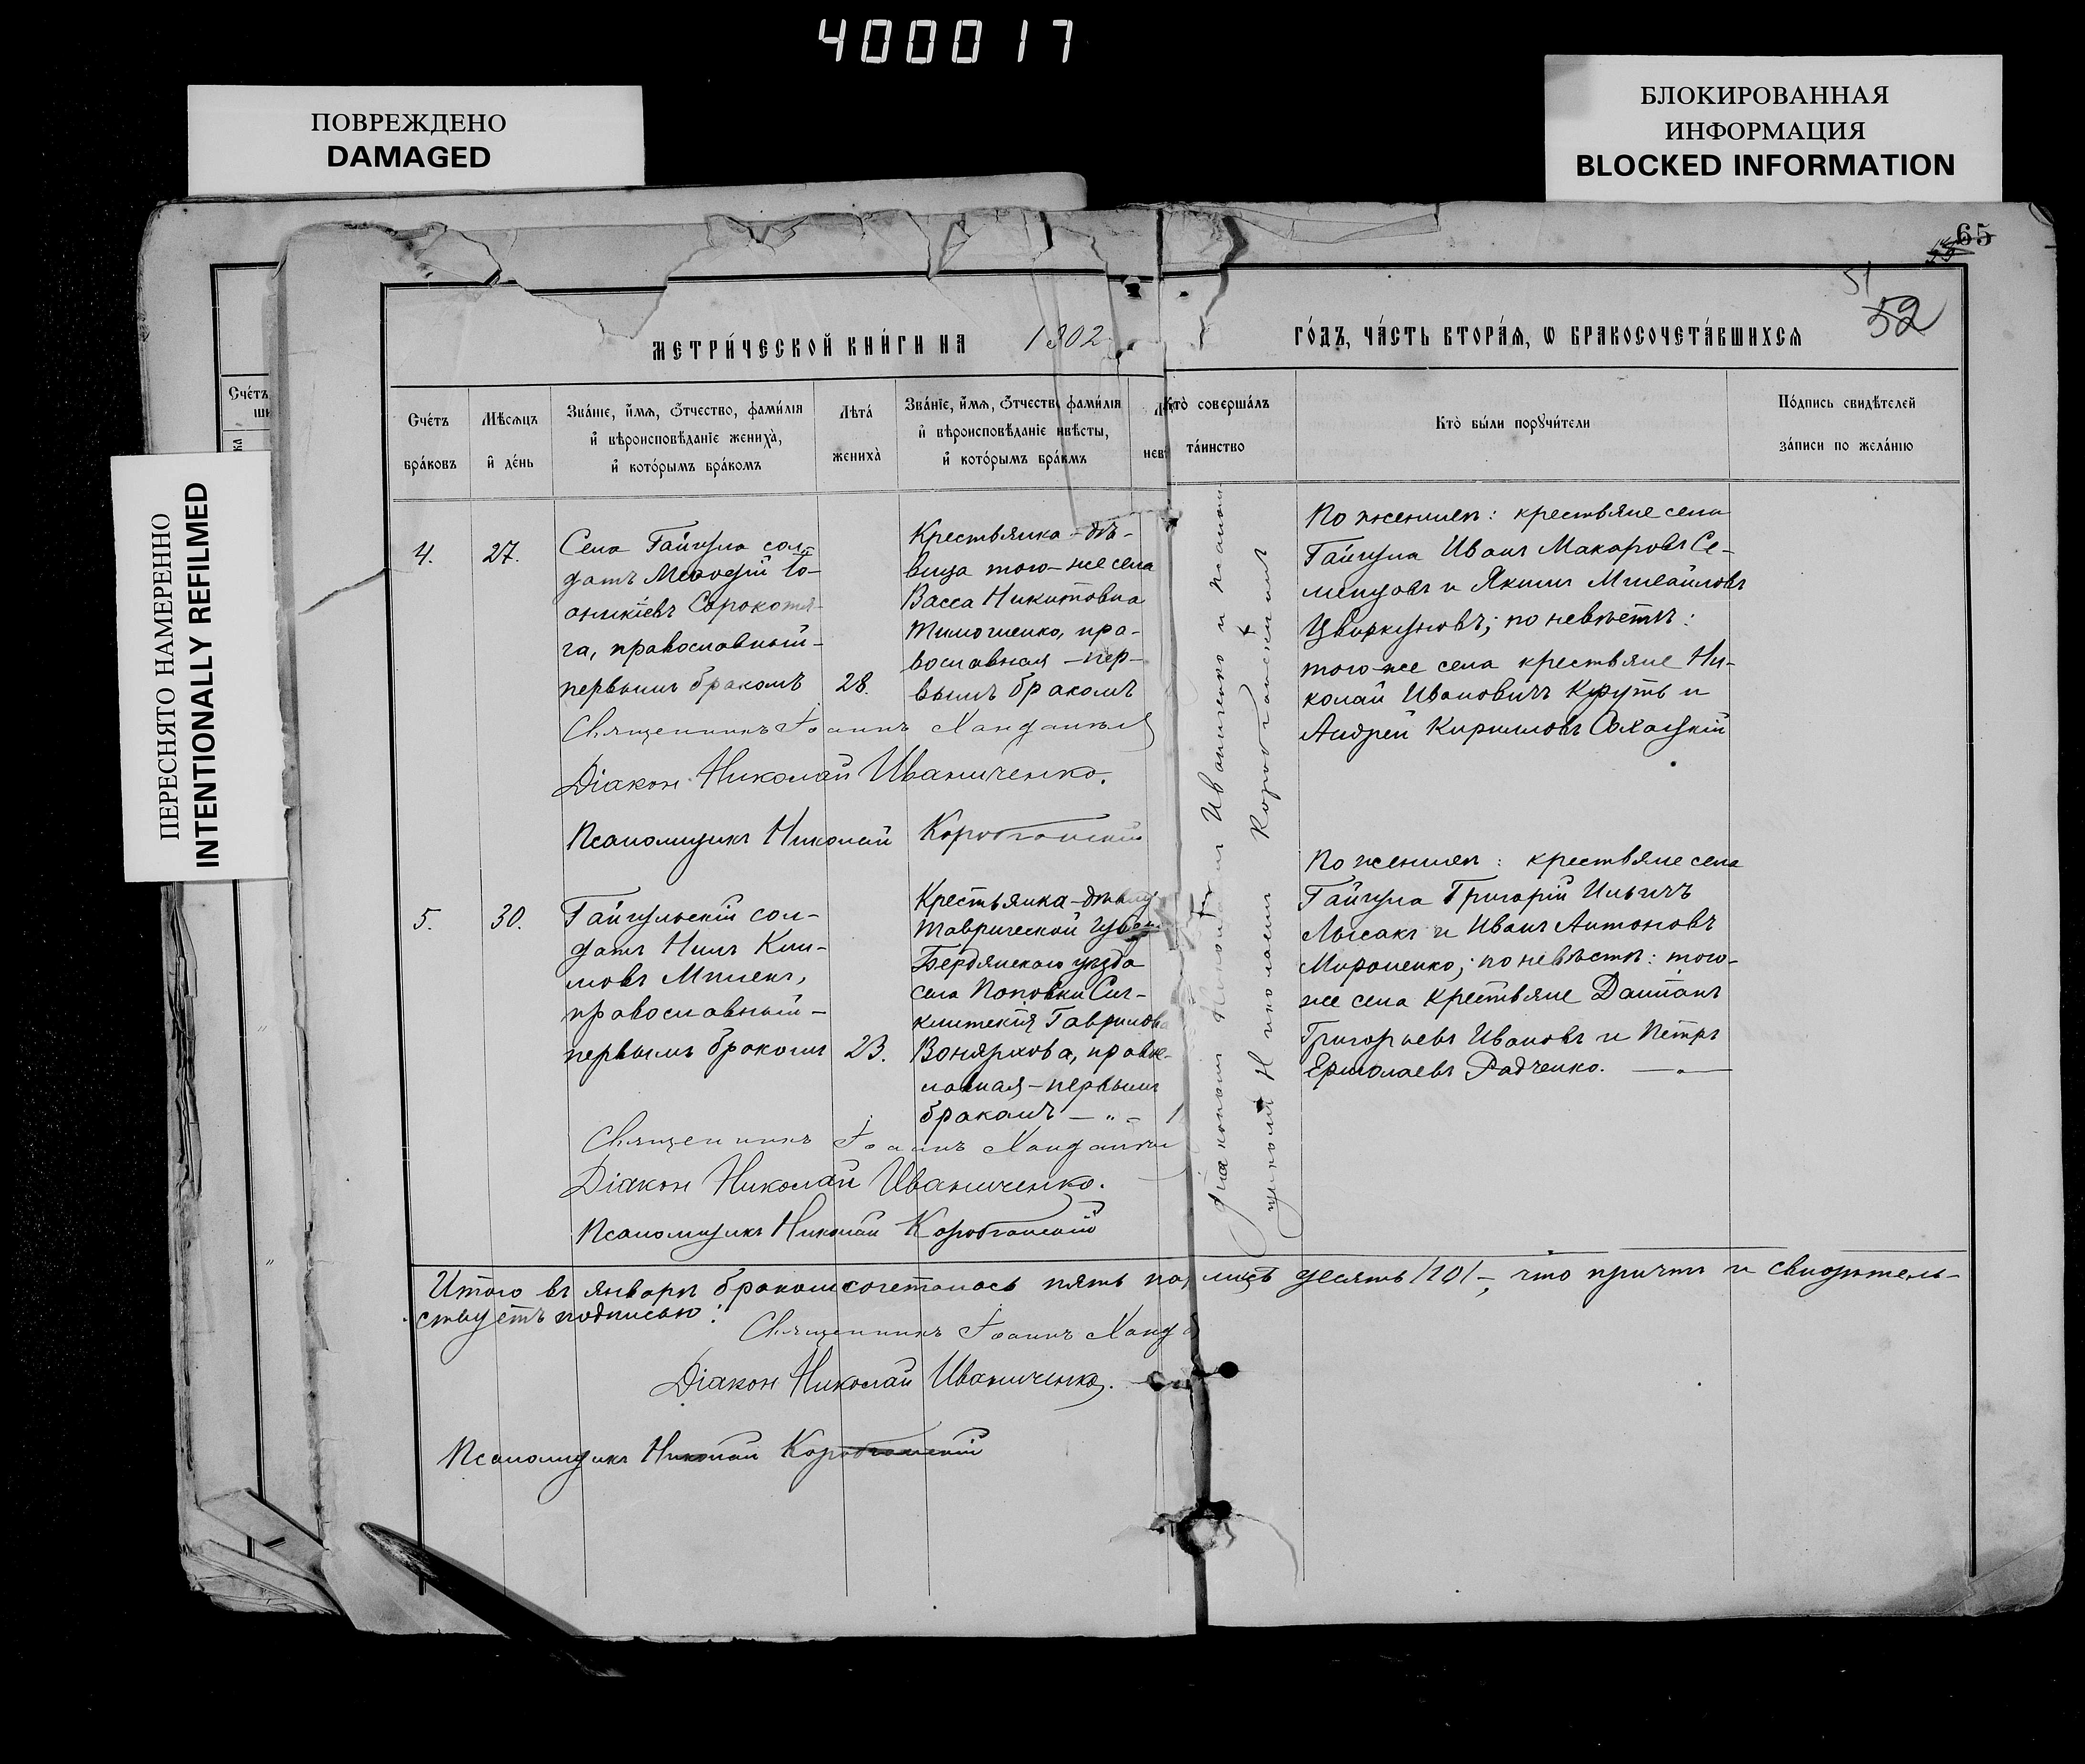 400017
ПОВРЕЖДЕНО
DAMAGED
БЛОКИРОВАННАЯ
ИНФОРМАЦИЯ
BLOCKED INFORMATION
ПЕРЕСНЯТО НАМЕРЕННО
INTENTIONALLY REFILMED
65
51
52
МЕТРИ́ЧЕСКОЙ КНИ́ГИ НА 1902
ГО́ДЪ, ЧА́СТЬ ВТОРА́Ѧ, Ѡ БРАКОСОЧЕТА́ВШИХСѦ
Счётъ
бра́ковъ
Мѣсѧцъ
и҆ де́нь
Зва́нїе, и҆мѧ, ѻтчество, фами́лїѧ
и҆ вѣроисповѣданїе жениха̀,
и҆ кото́рымъ бра́комъ
Лѣта́
жениха̀
Зва́нїе, и҆мѧ, ѻтчество, фами́лїѧ
и҆ вѣроисповѣданїе невѣсты,
и҆ кото́рымъ бра́комъ
Кто̀ соверша́лъ
та́инство
Кто̀ бы́ли порꙋчи́тели
По́дпись свидѣтелей
за́писи по жела́нїю
4.
27.
Села Гайчула сол-
датъ Меѳодій Іо-
аникіевъ Сорокотя-
га, православный-
первымъ бракомъ
28.
Крестьянка-дѣ-
вица того-же села
Васса Никитовна
Тимошенко, пра-
вославная-пер-
вымъ бракомъ
По женихѣ: крестьяне села
Гайчула Иванъ Макаровъ Се-
менцовъ и Якимъ Михайловъ
Цвиркуновъ; по невѣстѣ:
того-же села крестьяне Ни-
колай Ивановичъ Круть и
Андрей Кирилловъ Солацкій
Священникъ Іоаннъ
Діаконъ Николай Иваниченко.
Псаломщикъ Николай
5.
30.
Гайчульскій сол-
датъ Нилъ Кли-
мовъ
православный-
первымъ бракомъ
23.
Крестьянка-дѣвица
Таврической губерн.
Бердянскаго уѣзда
села Поповки Син-
клитекія Гаврилова
православ-
ная-первымъ
бракомъ
По женихѣ: крестьяне села
Гайчула Григорій Ильичъ
Лысакъ и Иванъ Антоновъ
Мироненко; по невѣстѣ: того-
же села крестьяне Даміанъ
Григорьевъ Ивановъ и Петръ
Ермолаевъ Радченко.
Священникъ Іоаннъ
Діаконъ Николай Иваниченко.
Псаломщикъ Николай
Итого въ январѣ бракомсочеталось пять паръ лицъ десять /10/-, что причтъ и свидѣтель-
ствуетъ подписью:
Священникъ Іоаннъ
Діаконъ Николай Иваниченко.
Псаломщикъ Николай